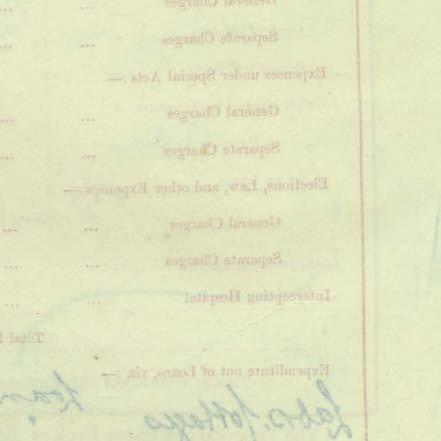 General Charges ... ...
Separate Charges ... ...
Expenses under Special Acts :—
General Charges ... ...
Separate Charges ... ...
Elections, Law, and other Expenses :—
General Charges ... ...
Separate Charges ... ...
Intercepting Hospital ... ...
Total
Expenditure out of Loans, viz. :—
Labrs. Cottages Loan